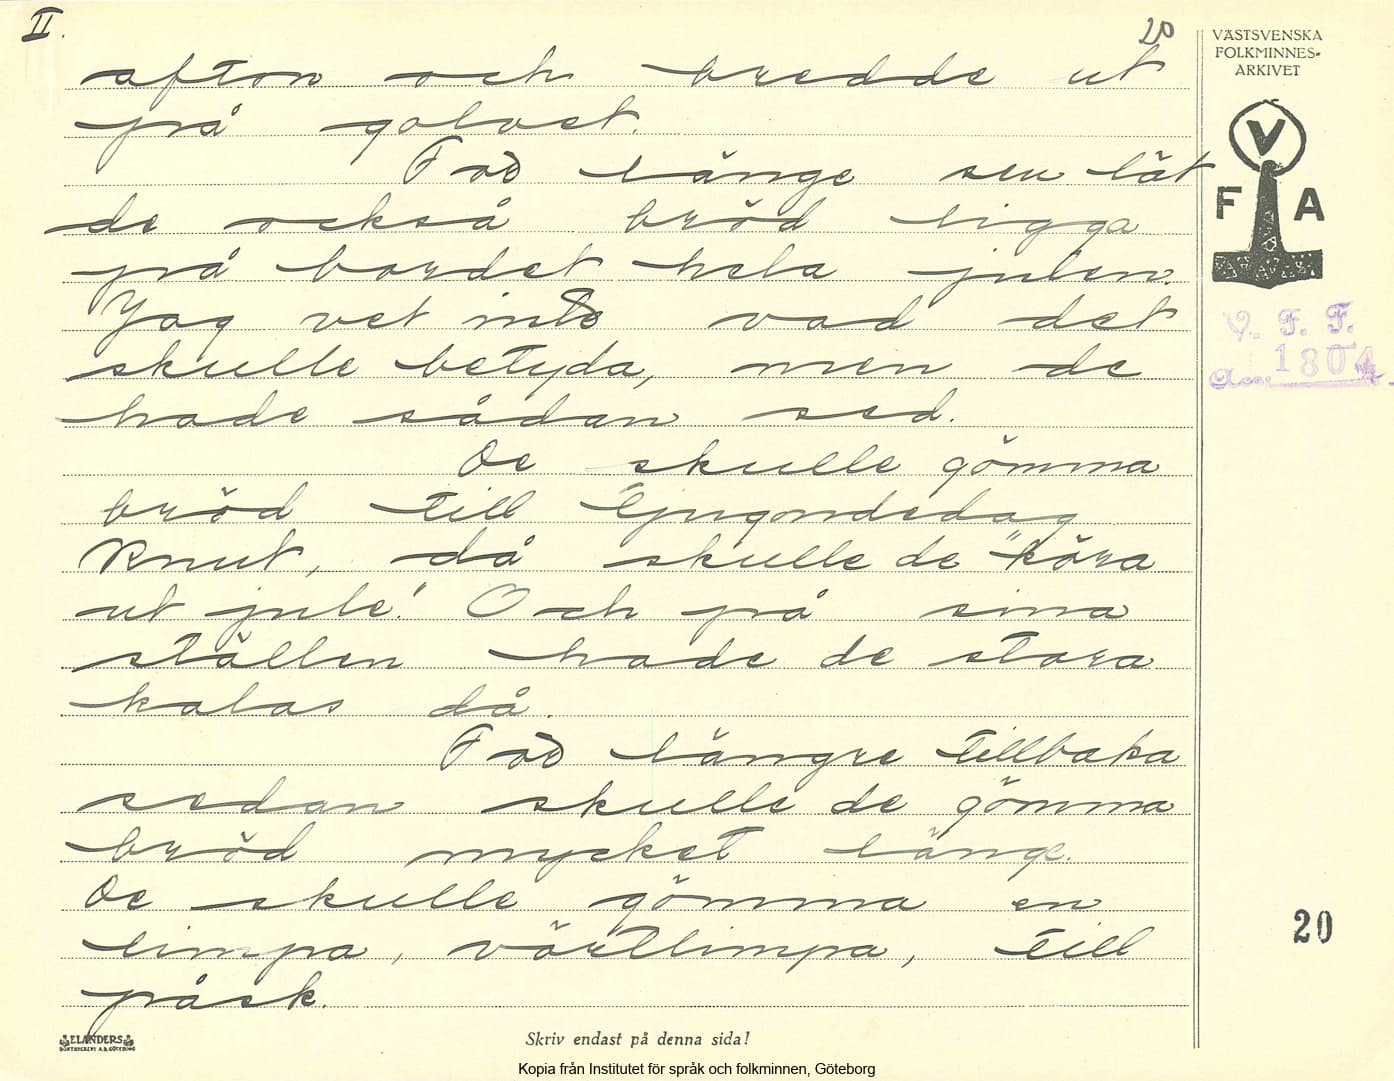 II.
20
afton och bredde ut
på golvet.
För länge sen lät
de också bröd ligga
på bordet hela julen.
Jag vet inte vad det
skulle betyda, men de
hade sådan sed.
De skulle gömma
bröd till tjugondedag
Knut, då skulle de "köra
ut jule". Och på sina
ställen hade de stora
kalas då.
För längre tillbaka
sedan skulle de gömma
bröd mycket länge.
De skulle gömma en
limpa, vörtlimpa, till
påsk.
VÄSTSVENSKA
FOLKMINNES-
ARKIVET
V
F A
V. F. F.
Acc. 1804
20
ELANDERS
BOKTRYCKERI A.B. GÖTEBORG
Skriv endast på denna sida!
Kopia från Institutet för språk och folkminnen, Göteborg